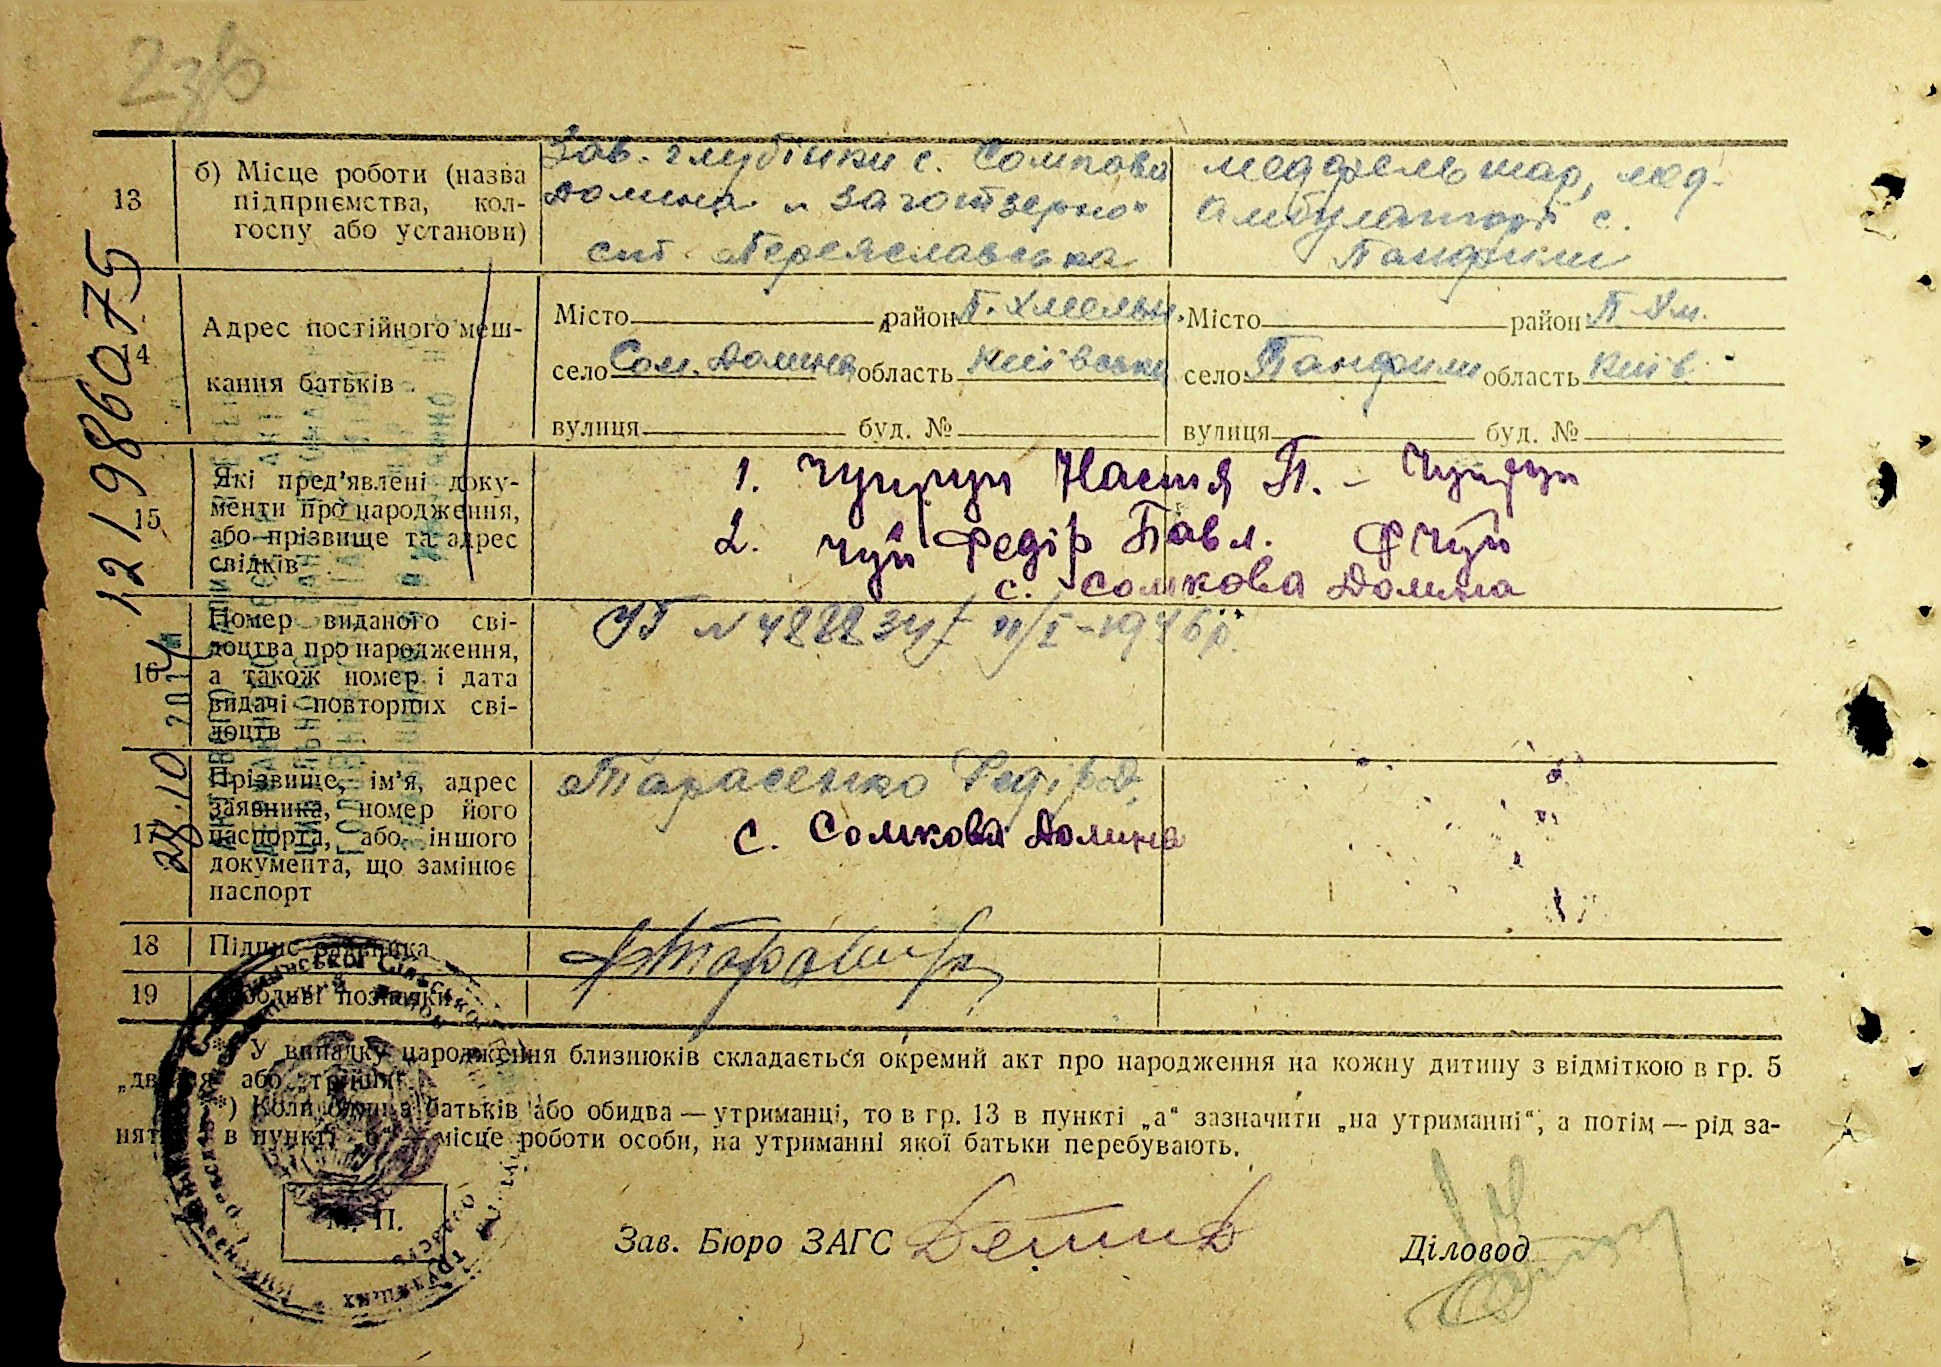 13
б) Місце роботи (назва
підприємства, кол-
госпу або установи)
Зав. глубінки с. Сомкова
Долина „Заготзерно"
ст. Переяславська
медфельшар, мед-
амбулаторії с.
Панфили
14
Адрес постійного меш-
кання батьків
Місто район П. Хмельн.
село Сом. Долина область Київська
вулиця буд. №
Місто район П. Хм.
село Панфили область Київ.
вулиця буд. №
15
Які пред'явлені доку-
менти про народження,
або прізвище та адрес
свідків
1. Настя П. –
2. Чуй Федір Павл. ФЧуй
с. Сомкова Долина
16
Номер виданого сві-
доцтва про народження,
а також номер і дата
видачі повторних сві-
доцтв
1946 р.
17
Прізвище, ім'я, адрес
заявника, номер його
паспорта, або іншого
документа, що замінює
паспорт
Тарасенко Федір Д.
с. Сомкова Долина
18
Підпис заявника
19
Особливі позначки
*) У випадку народження близнюків складається окремий акт про народження на кожну дитину з відміткою в гр. 5
„двійня" або „трійня".
**) Коли один з батьків або обидва — утриманці, то в гр. 13 в пункті „а" зазначити „на утриманні", а потім — рід за-
няття, а в пункті „б" — місце роботи особи, на утриманні якої батьки перебувають.
М. П.
Зав. Бюро ЗАГС
Діловод
1219860275
28.10.2014